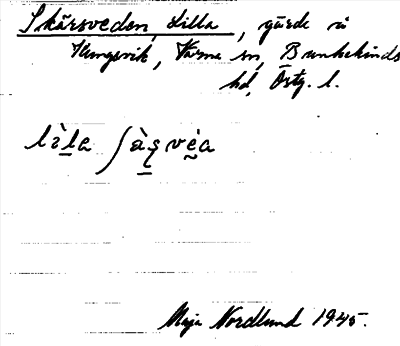 Skärsveden, Lilla, gärde å
Kungsvik, Värne sn, Bankekinds
hd, Östg. l.
lìla ʃàș vèa
Maja Nordlund 1945.